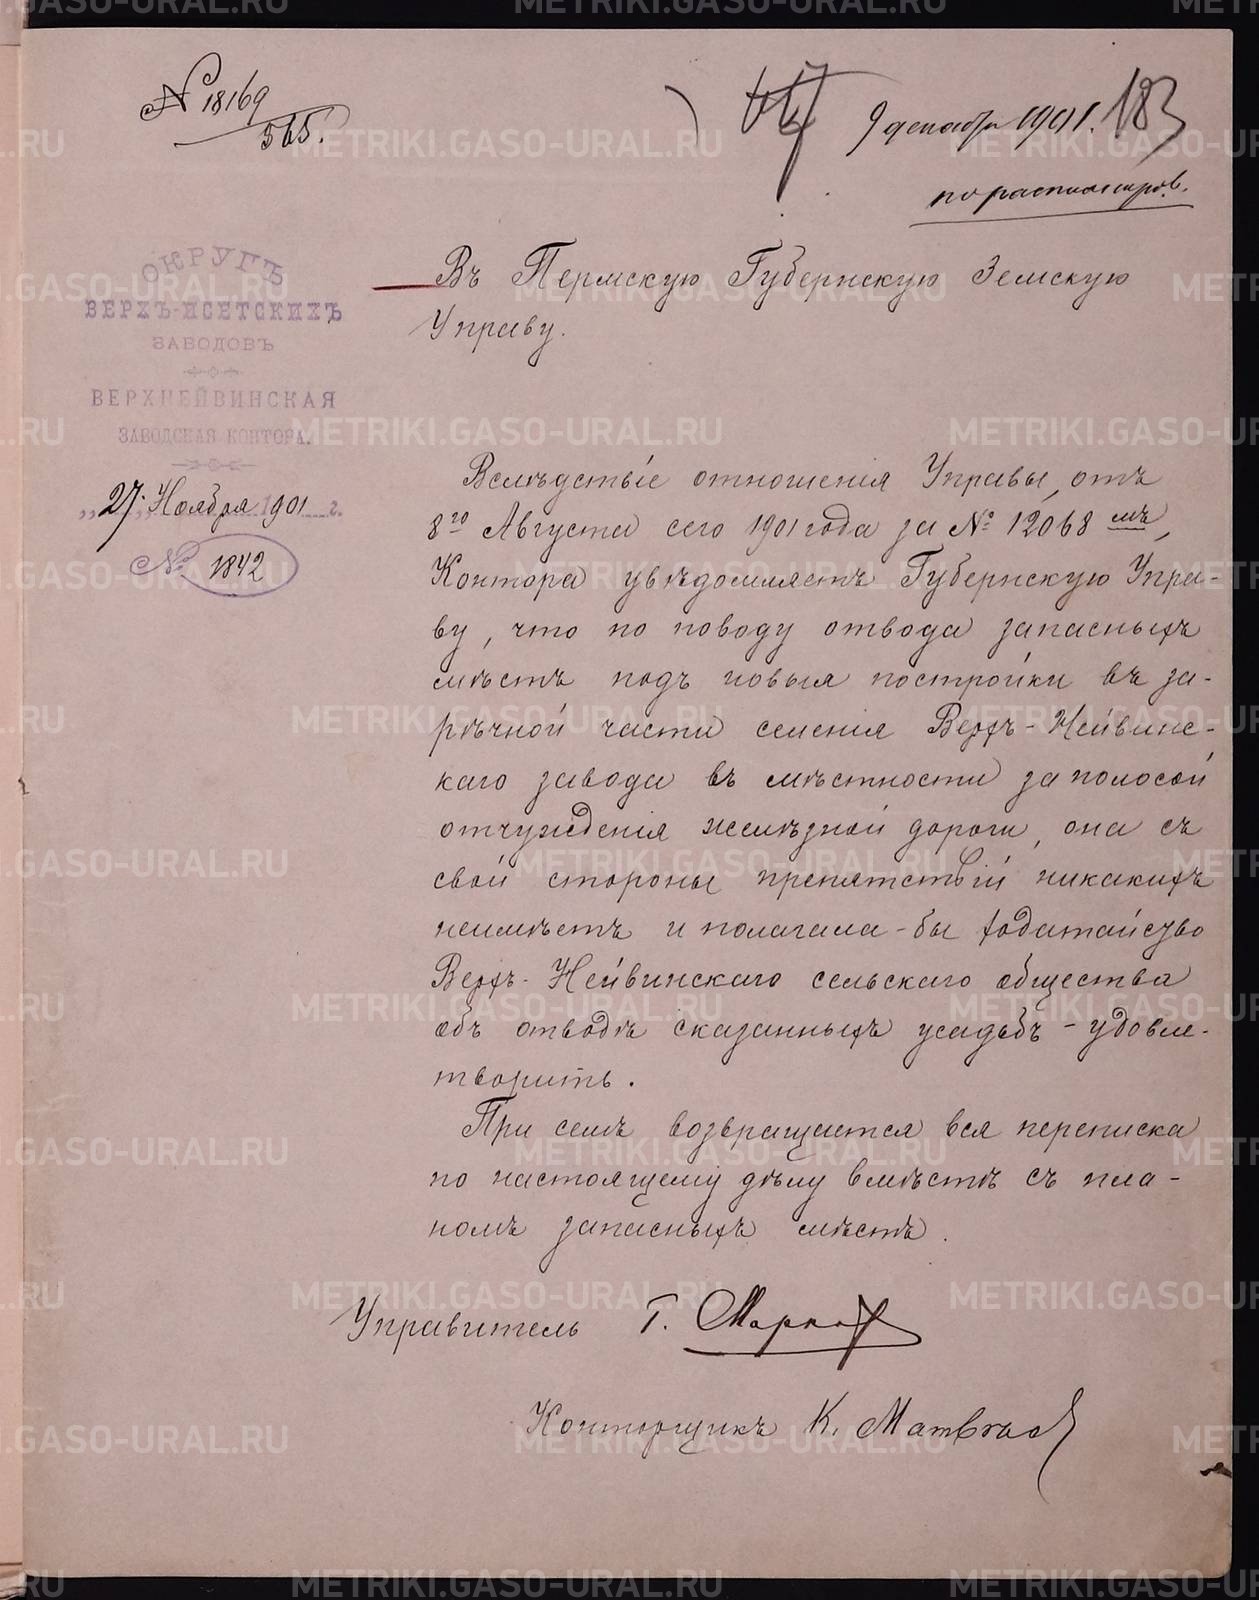 № 18169
565.
9 декабря 1901. 183
ОКРУГЪ
ВЕРХЪ-ИСЕТСКИХЪ
ЗАВОДОВЪ
ВЕРХНЕЙВИНСКАЯ
ЗАВОДСКАЯ КОНТОРА.
„27„ Ноября 1901 г.
№ 1842
Въ Пермскую Губернскую Земскую
Управу.
Вслѣдствіе отношенія Управы, отъ
8го Августа сего 1901 года за № 12068мъ,
Контора увѣдомляетъ Губернскую Упра-
ву, что по поводу отвода запасныхъ
мѣстъ подъ новыя постройки въ за-
рѣчной части селенія Верхъ-Нейвинс-
каго завода въ мѣстности за полосой
отчужденія желѣзной дороги, она съ
свой стороны препятствій никакихъ
неимѣетъ и полагала-бы ходатайство
Верхъ-Нейвинскаго сельскаго общества
объ отводѣ сказанныхъ усадьбъ - удовле-
творить.
При семъ возвращается вся переписка
по настоящему дѣлу вмѣстѣ съ пла-
номъ запасныхъ мѣстъ.
Управитель Г. Марков
Конторщикъ К. Матвѣев
METRIKI.GASO-URAL.RU